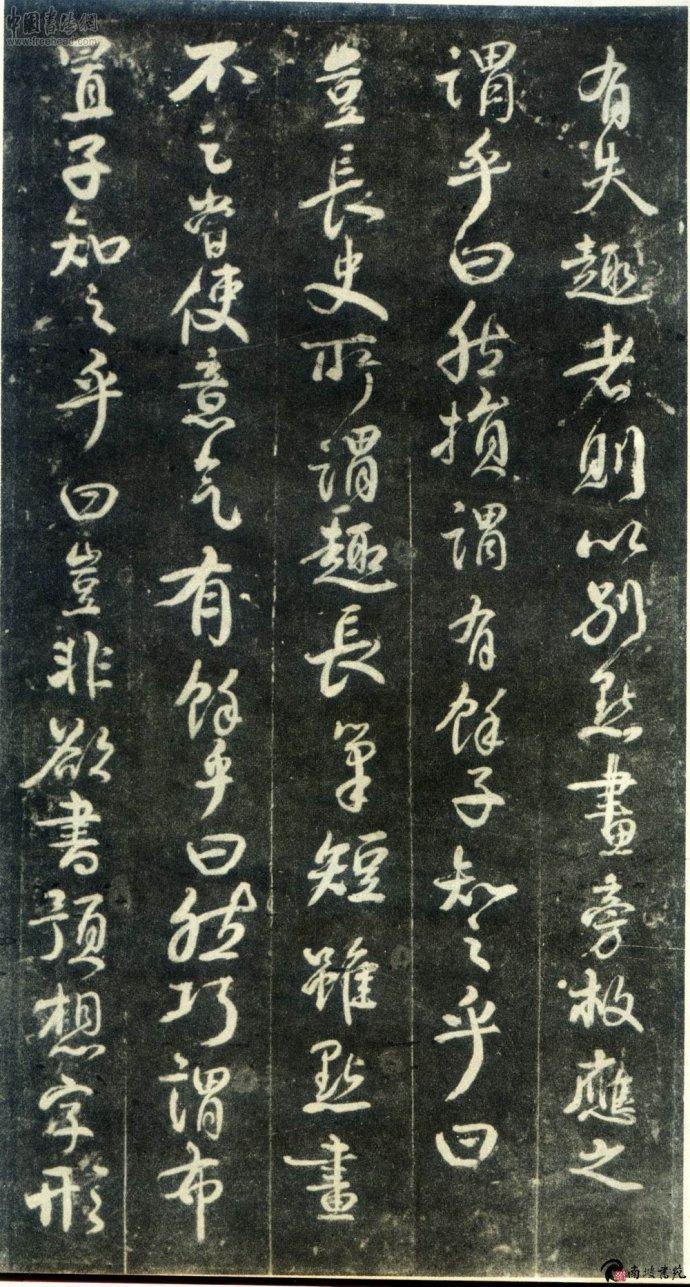 有失趣者則以別點畫旁救應之
謂乎曰然損謂有餘子知之乎曰
豈長史所謂趣長筆短雖點畫
不足常使意气有餘乎曰然巧謂布
置子知之乎曰豈非欲書預想字形
中國書法網
www.freehead.com